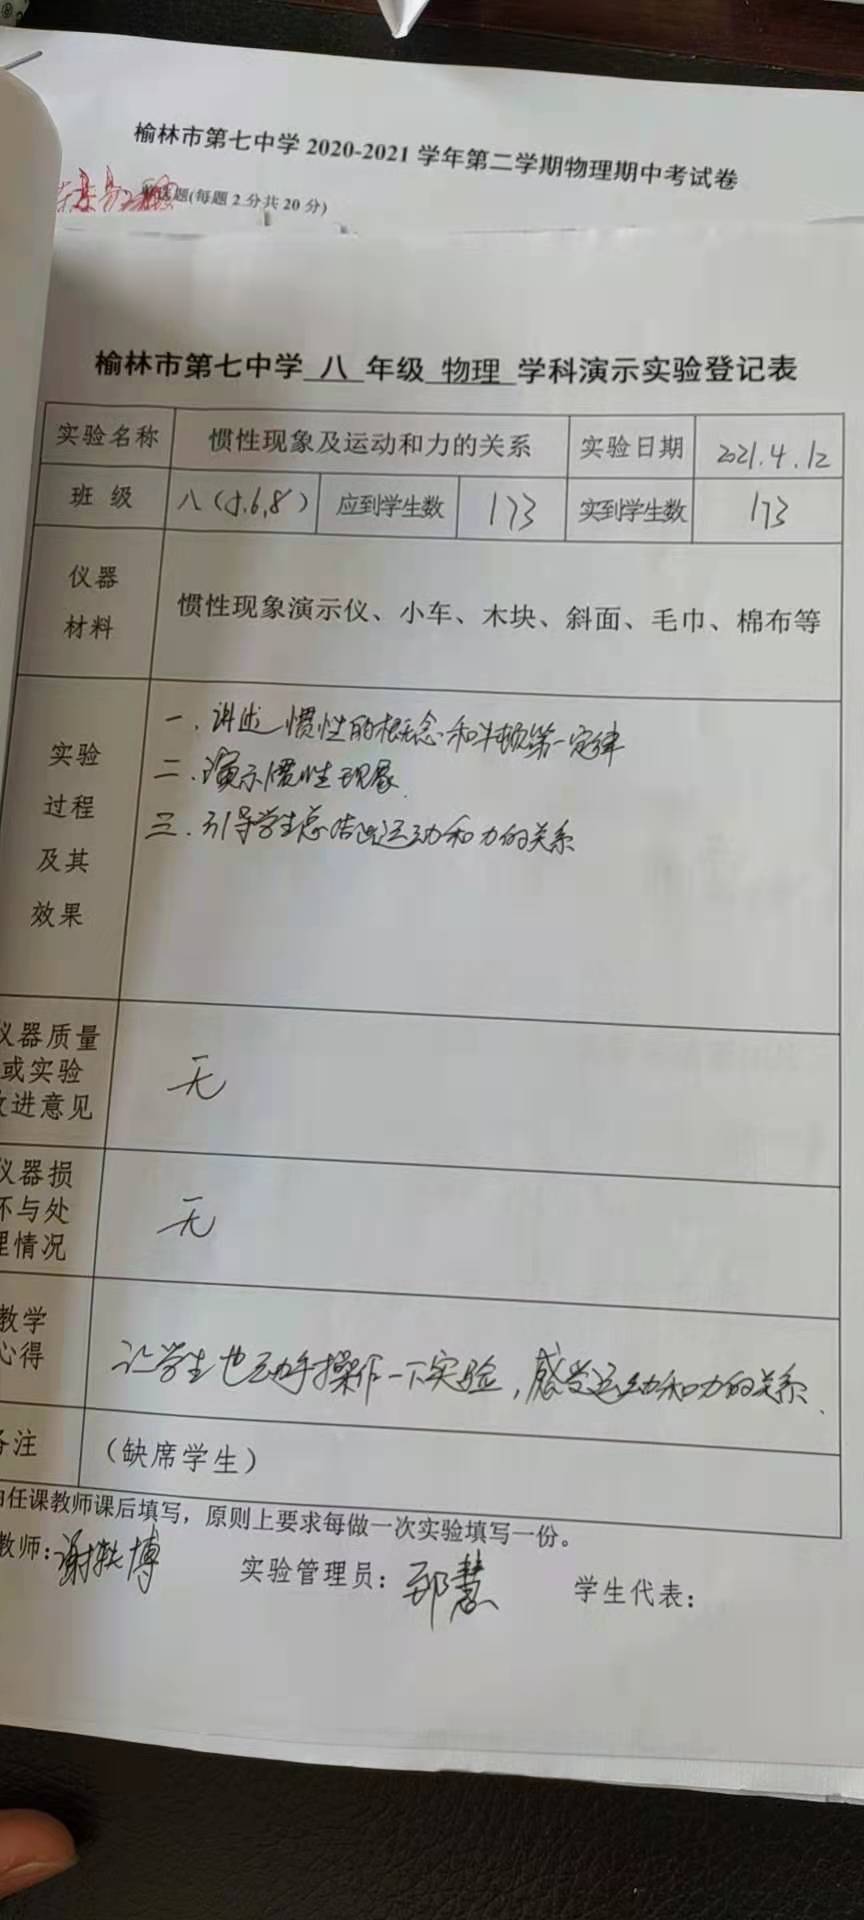 榆林市第七中学 2020-2021 学年第二学期物理期中考试卷
选题(每题 2 分共 20 分)
榆林市第七中学 八 年级 物理 学科演示实验登记表
实验名称 惯性现象及运动和力的关系 实验日期 2021.4.12
班 级 八(5.6.8) 应到学生数 173 实到学生数 173
仪器
材料
惯性现象演示仪、小车、木块、斜面、毛巾、棉布等
实验
过程
及其
效果
一.讲述惯性的概念和牛顿第一定律
二.演示惯性现象.
三.引导学生总结出运动和力的关系
仪器质量
或实验
改进意见
无
仪器损
坏与处
理情况
无
教学
心得
让学生也动手操作一下实验,感受运动和力的关系.
备注 (缺席学生)
由任课教师课后填写,原则上要求每做一次实验填写一份。
教师: 谢 博 实验管理员: 慧 学生代表: